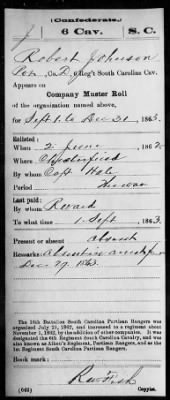 (Confederate.)
J 6 Cav. S. C.
Robert Johnson
Co. D, 6 Reg't South Carolina Cav.
Appears on
Company Muster Roll
of the organization named above,
for Sept 1 to Dec 31, 1863.
Enlisted:
When 2 June, 186
Where Chesterfield
By whom Capt
Period the war
Last paid:
By whom
To what time 1 Sept, 1863.
Present or absent absent
Remarks: Absent
Dec 29, 1863.
The 16th Battalion South Carolina Partisan Rangers was
organized July 21, 1862, and increased to a regiment about
November 1, 1862, by the addition of other companies. It was
designated the 6th Regiment South Carolina Cavalry, and was
also known as Aiken's Regiment, Partisan Rangers, and as the
1st Regiment South Carolina Partisan Rangers.
Book mark:
(642) Copyist.